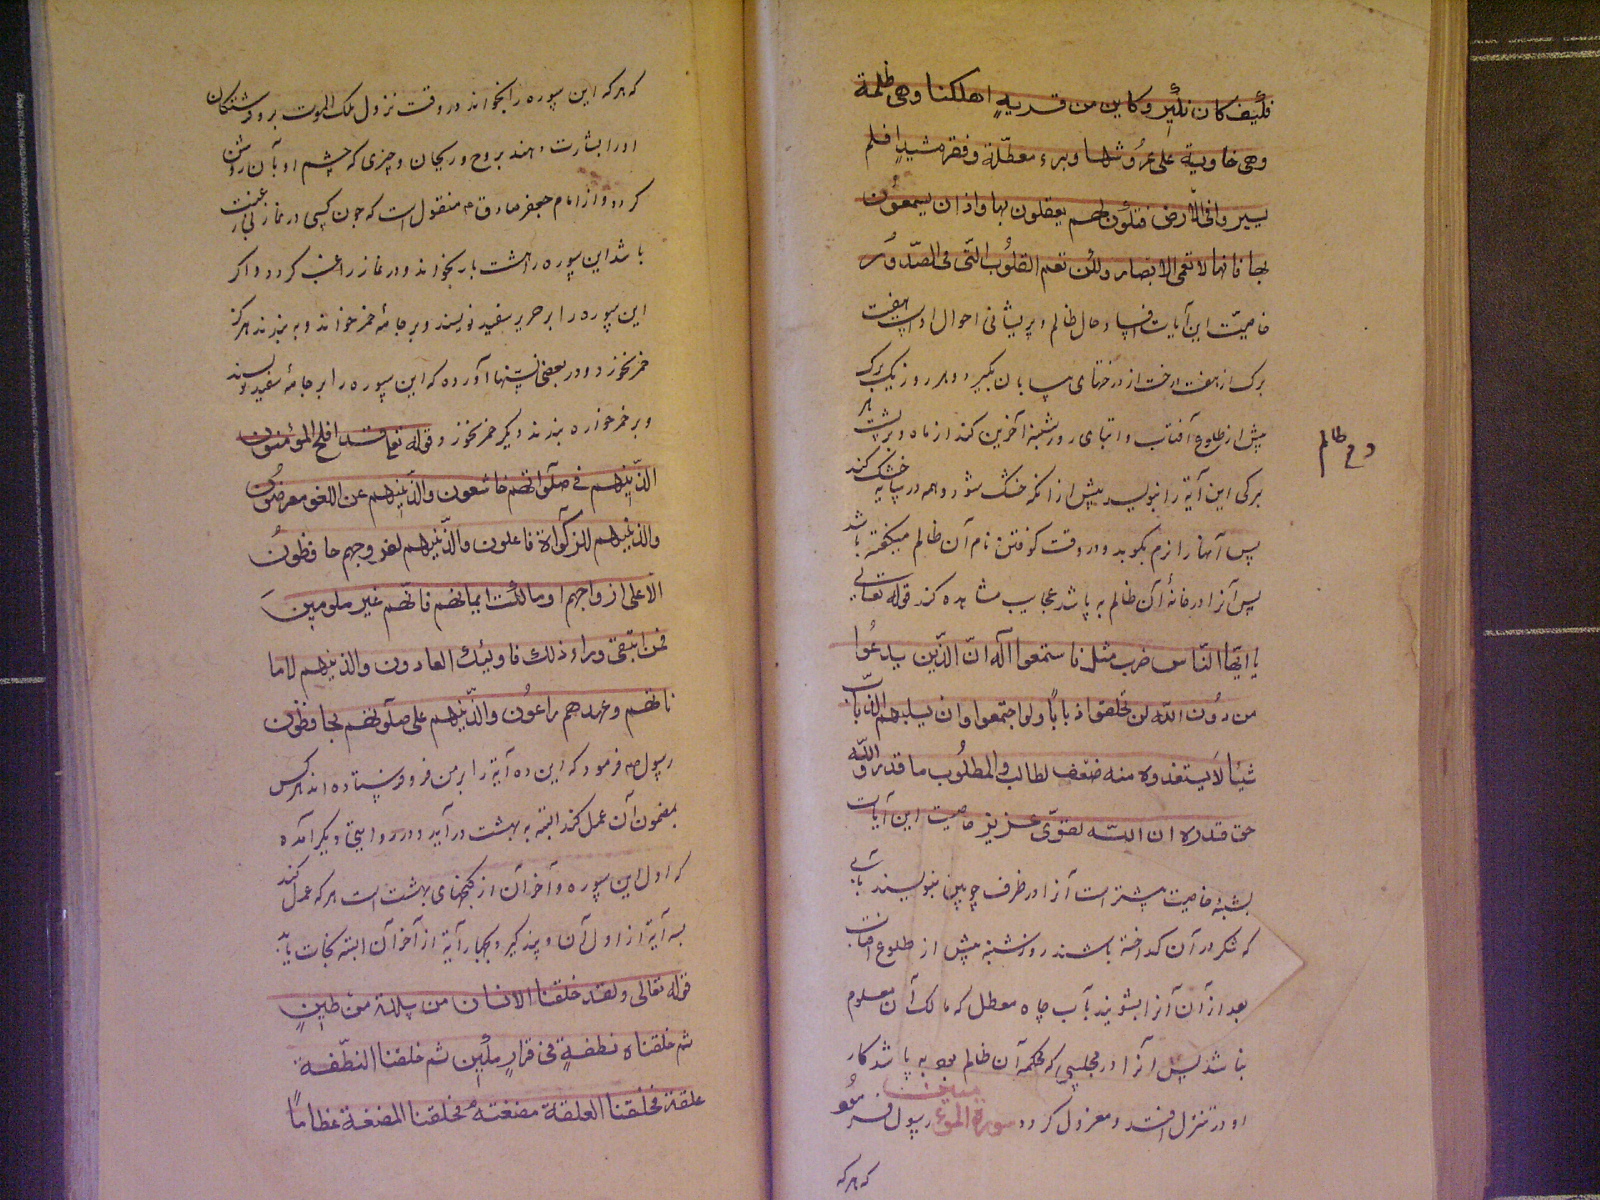 فکیف کان نکیر وکاین من قریةٍ اهلکنا وهی ظلمة
وهی خاویة علی عُرُوشها وبیرء معطّلة وقصر مشیدٍ افلم
یسیر وافی الارض فتکُون لهم یعقلون بها واذان یسمعُون
بها فانها لا تعمی الابصار ولکن تعم القلُوب الّتی فی الصّدُور
خاصیّت این آیات افساد حال ظالم و پریشانی احوال اوست هفت
برک از هفت درخت از درختهای بیابان بکیرد و هر روز یک برک
پیش از طلوع آفتاب و ابتدای روز شنبهٔ آخرین کند از ماه و بر پشت هر
برکی این آیة را بنویسد پیش از آنکه خشک شود و همه در سایه خشک کند
دفع ظالم
پس آنها را نرم بکوبد و در وقت کوفتن نام آن ظالم میکفته باشد
پس آنرا در خانهٔ آن ظالم به پاشد عجایب مشاهده کند قوله تعالی
یا ایّها النّاس ضرب مثل فاستمعوا له انّ الّذین یدعُوا
من دُون اللّه لن یخلقوا ذباباً ولو اجتمعوا وان یسلبهم الذّباب
شیئا لا یستنفدوه منه ضعف لطالب والمطلُوب ما قدر اللّه
حق قدره ان اللّه لقوّی عزیز خاصیت این آیات
بشبهٔ خاصیت پیشتر است آنرا در ظرف چوبین بنویسند بآبی
که شکر در آن کداخته باشند روز شنبه پیش از طلوع آفتاب
بعد از آن آنرا بشویند بآب چاه معطل که مالک آن معلوم
نباشد پس آنرا در مجلسی که محکمه آن ظالم بود به پاشد کار
او در تنزل افتد و معزول کردد سورة المؤمنین رسول فرمُو
که هرکه
که هرکه این سوره را بخواند در وقت نزول ملک الموت برو فرشتکان
اورا بشارت دهند بروح و ریحان و چیزی که چشم او بآن روشن
کردد و از امام جعفر صادق ع منقول است که چون کسی در نماز بی رغبت
باشد این سوره را هشت بار بخواند و در نماز راغب کردد و اکر
این سوره را بر حریر سفید نویسند و بر جامهٔ خمر خواند و به بندند هرکز
خمر نخورد و در بعضی نسخها آورده که این سوره را بر جامهٔ سفید نویسند
و بر خمر خواره بندند دیکر خمر نخورد قوله تعا قد افلح المؤمنون
الذّینهم فی صلواتهم خاشعون والّذینهم عن اللغو معرضون
والذینهم للزکوٰاة فاعلون والّذینهم لفروجهم حافظُون
الا علی ازواجهم او ما ملکت ایمانهم فانّهم غیر ملومین
فمن ابتقی وراء ذلک فاولیئک العادون والذینهم لاما
ناتهم وعهدهم راعُون والّذینهم علی صلوتهم یحافظون
رسول ص فرمود که این ده آیة را بر من فرو فرستاده اند هر کس
بمضمون آن عمل کند البته به بهشت در آید و در روایتی دیکر آمده
که اول این سوره و آخر آن از کنجهای بهشت است هر که عمل کند
بسه آیة از اول آن و پند کیرد بچهار آیة از آخر آن البته نجات یابد
قوله تعالی ولقد خلقنا الانسان من سللة من طینٍ
ثم خلقناه نطفةٍ فی قرارٍ مکین ثم خلقنا النطّفة
علقة فخلقنا العلقة مضغته فخلقنا المضغة عظاماً